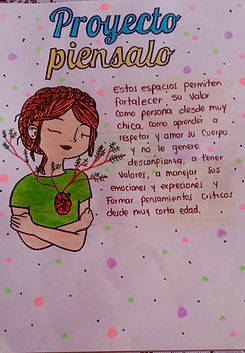 Proyecto
piensalo
Estos espacios permiten
fortalecer su valor
como persona desde muy
chica, como aprender a
respetar y amar su cuerpo
y no le genere
desconfianza, a tener
valores, a manejar sus
emociones y expreciones y
Formar pensamientos criticos
desde muy corta edad.